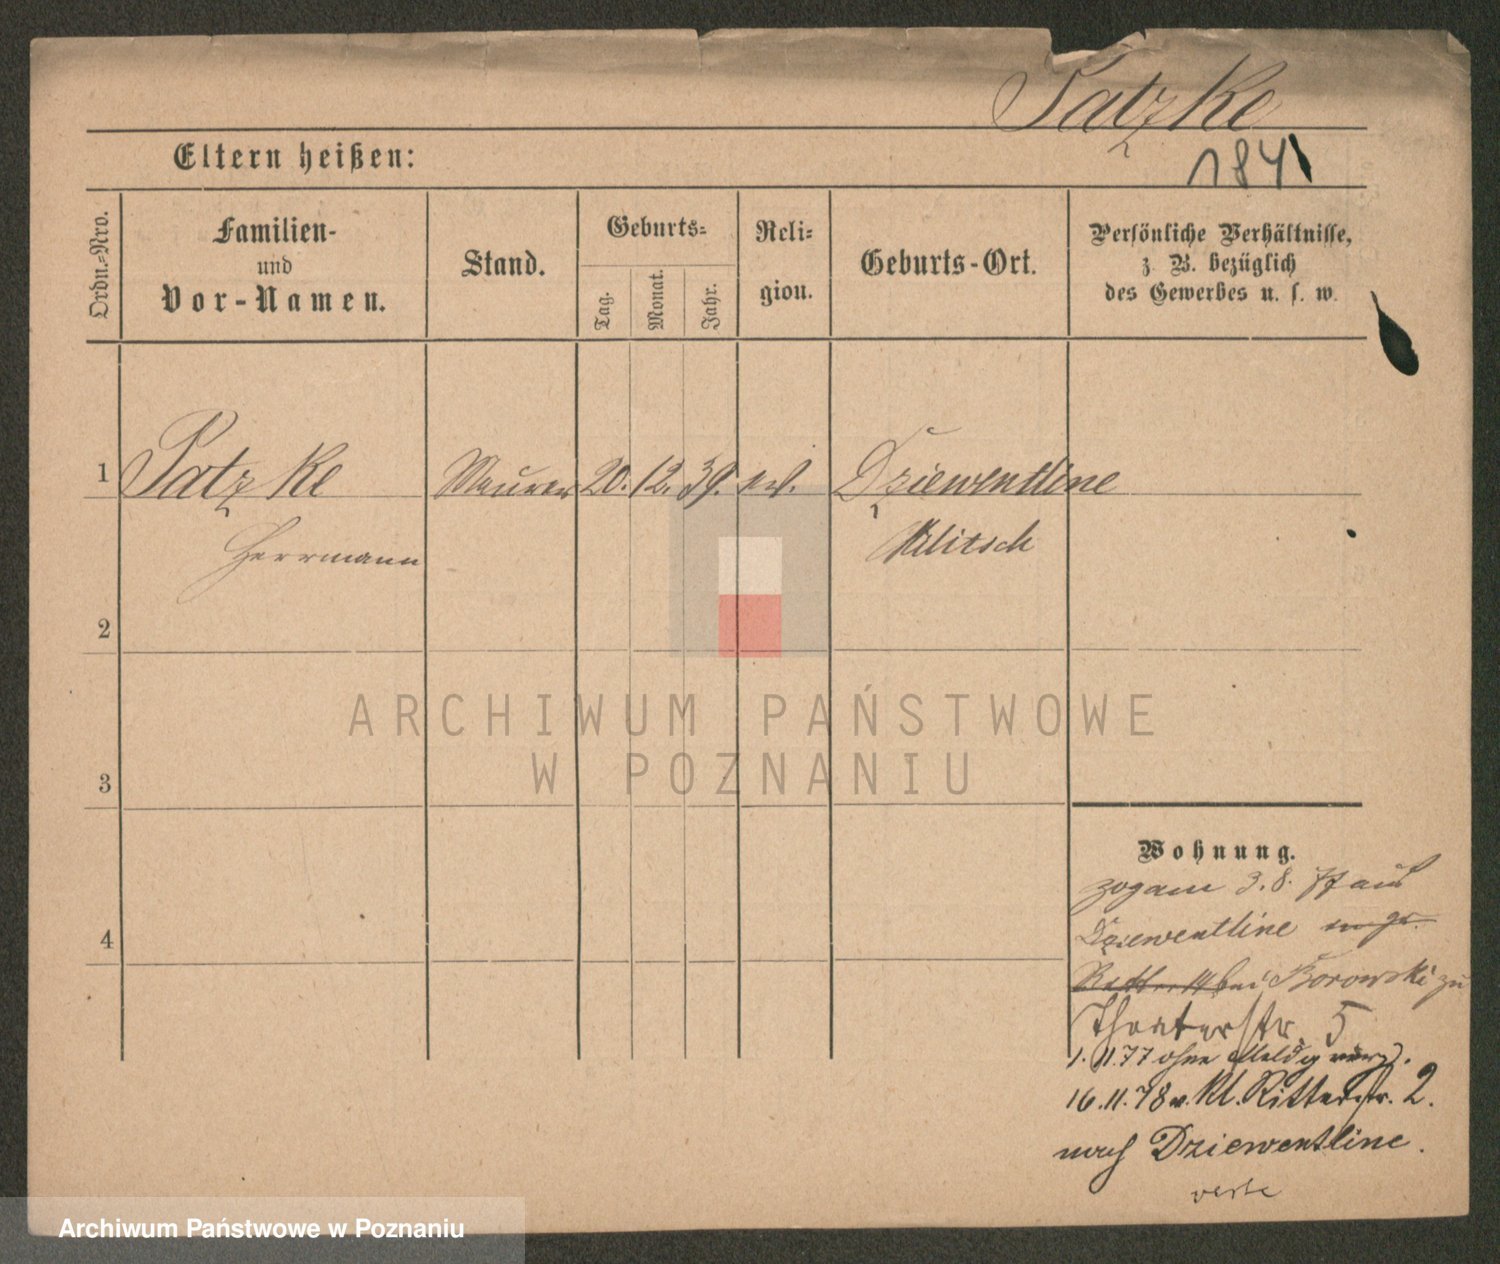 Patzke
1841
Eltern heißen:
Ordn.-Nro.
Familien-
und
Vor-Namen.
Stand.
Geburts-
Tag.
Monat.
Jahr.
Reli-
gion.
Geburts-Ort.
Persönliche Verhältnisse,
z. B. bezüglich
des Gewerbes u. s. w.
1 Patzke Maurer 20. 12. 39. ev. Dziewentline
Herrmann Militsch
2
3
4
ARCHIWUM PAŃSTWOWE
W POZNANIU
Wohnung.
zog am 3. 8. 77 aus
Dziewentline
bei Borowski zu
Theaterstr 5
1. 11. 77 ohne Meldg verz.
16. 11. 78 v. Kl. Ritterstr. 2.
nach Dziewentline.
verte
Archiwum Państwowe w Poznaniu